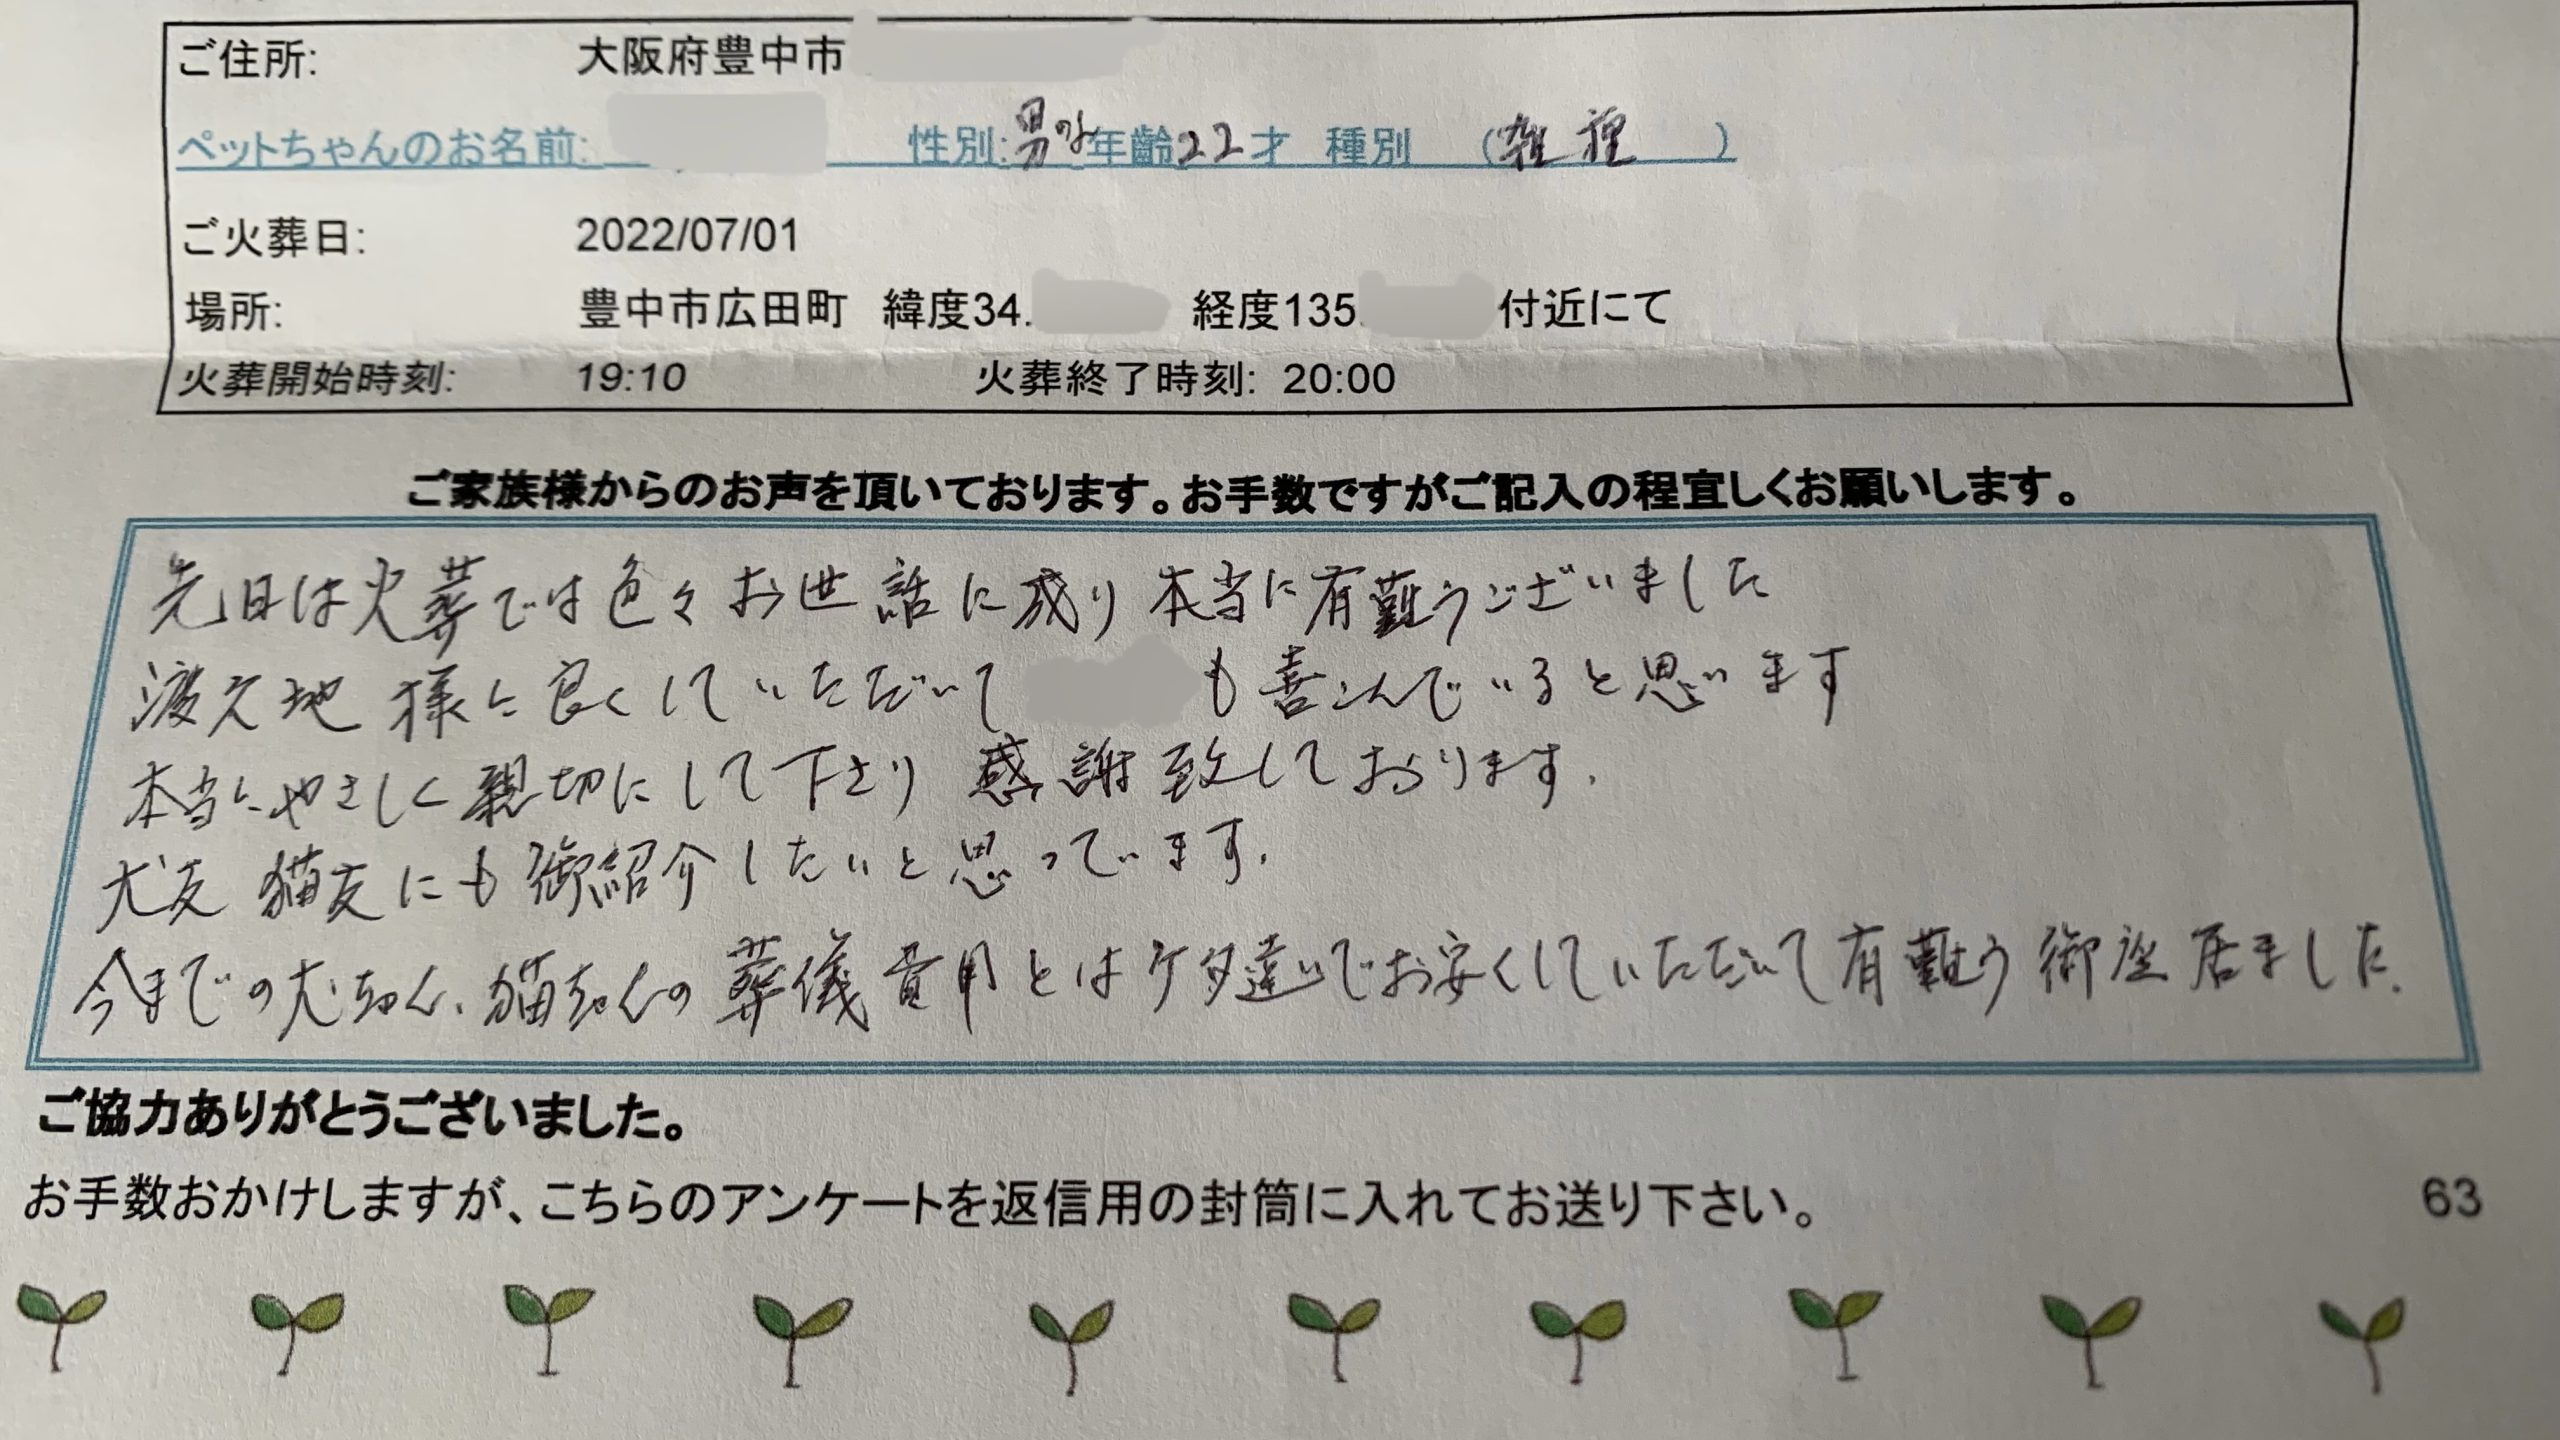 ご住所: 大阪府豊中市
ペットちゃんのお名前: 性別:男の子 年齢22才 種別 (雑種 )
ご火葬日: 2022/07/01
場所: 豊中市広田町 緯度34. 経度135. 付近にて
火葬開始時刻: 19:10 火葬終了時刻: 20:00
ご家族様からのお声を頂いております。お手数ですがご記入の程宜しくお願いします。
先日は火葬では色々お世話に成り本当に有難うございました
渡久地様に良くしていただいて も喜こんでいると思います
本当にやさしく親切にして下さり感謝致しております.
犬友 猫友にも御紹介したいと思っています.
今までの犬ちゃん、猫ちゃんの葬儀費用とはケタ違いでお安くしていただいて有難う御座居ました.
ご協力ありがとうございました。
お手数おかけしますが、こちらのアンケートを返信用の封筒に入れてお送り下さい。 63